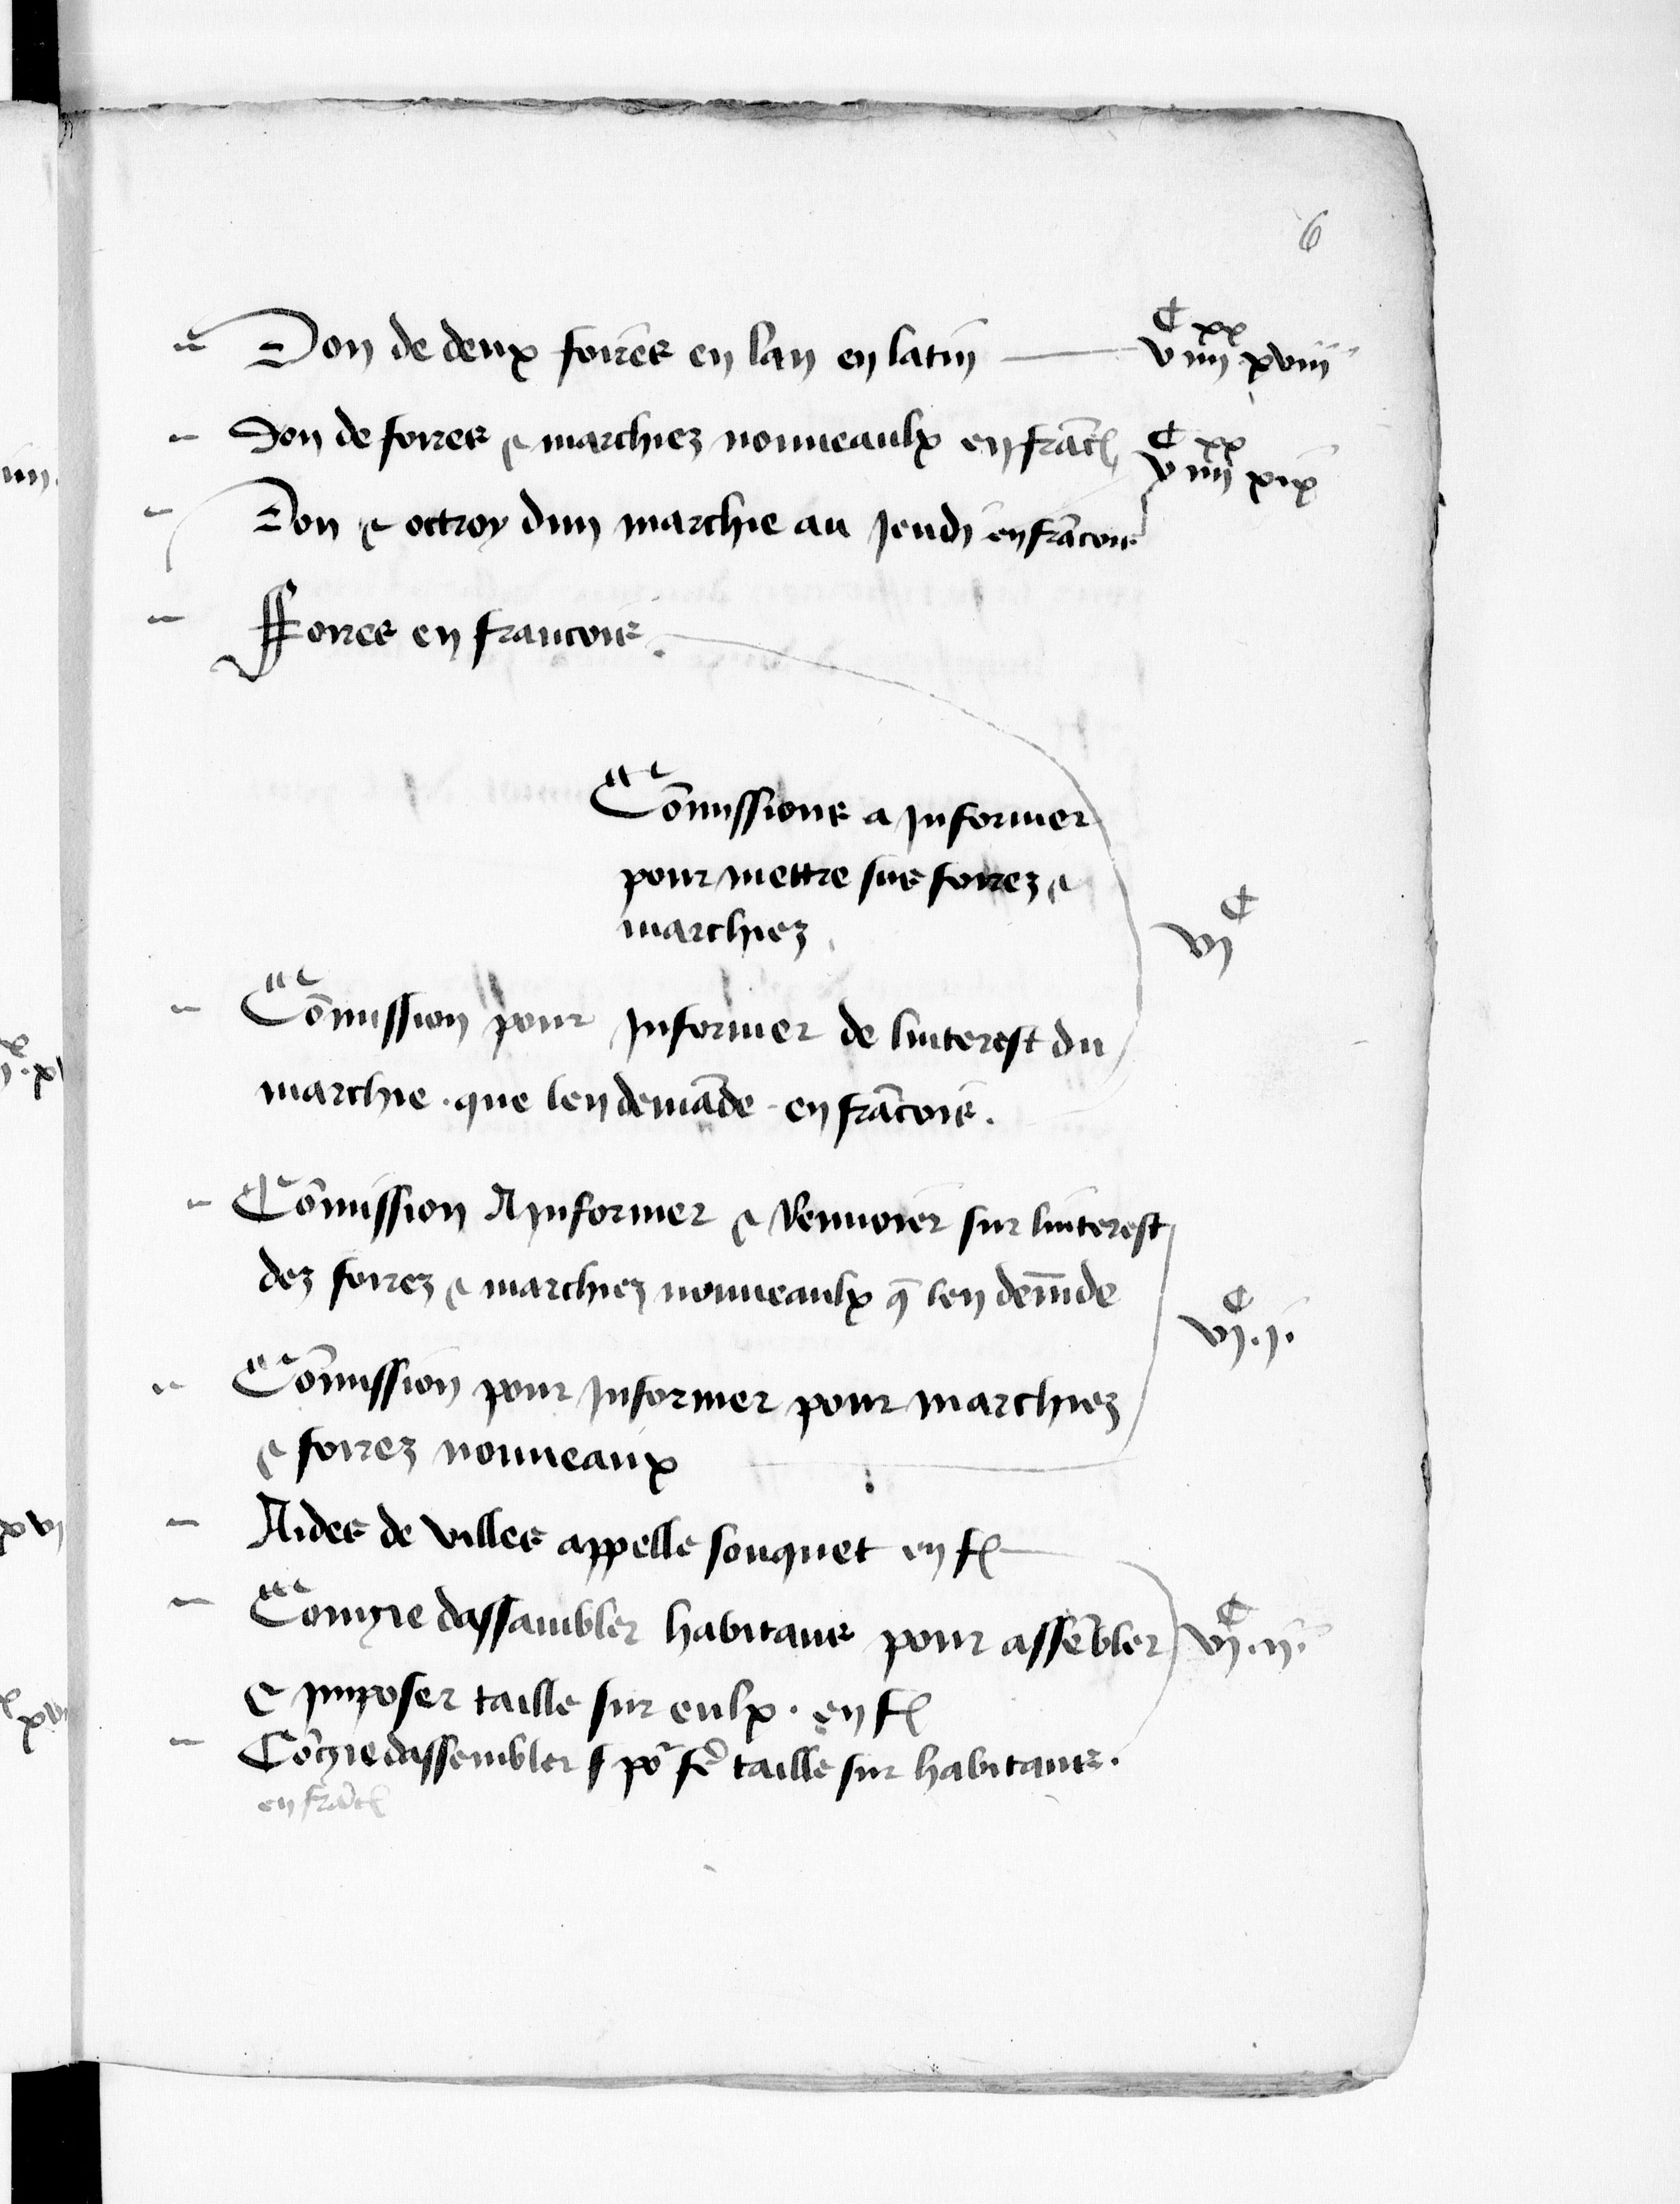 6
Don de deux foires en lan en latin v^C iiii^xx xviii
Don de foires & marchiez nouueaulx en franc̄ v^C iiii^xx xix
Don & octroy dun marchie au Jeudi en frācois
Foires en francois.
Cōmissions a Informer
pour mettre sus foirez &
marchiez vi^C
Cōmission pour Informer de linterest du
marchie . que len demāde en frācois .
Cōmission A Informer & Renuoier sur linterest
dez foirez & marchiez nouueaulx q̄ len demāde
vi^C . i .
Cōmission pour Informer pour marchiez
& foirez nouueaux
Aides de villes appelle souquet en f
Congie dassambler habitans pour assēbler vi^C . ii .
& Imposer taille sur eulx . en f
Cōgie dassembler po^r fē taille sur habitans .
en franc̄